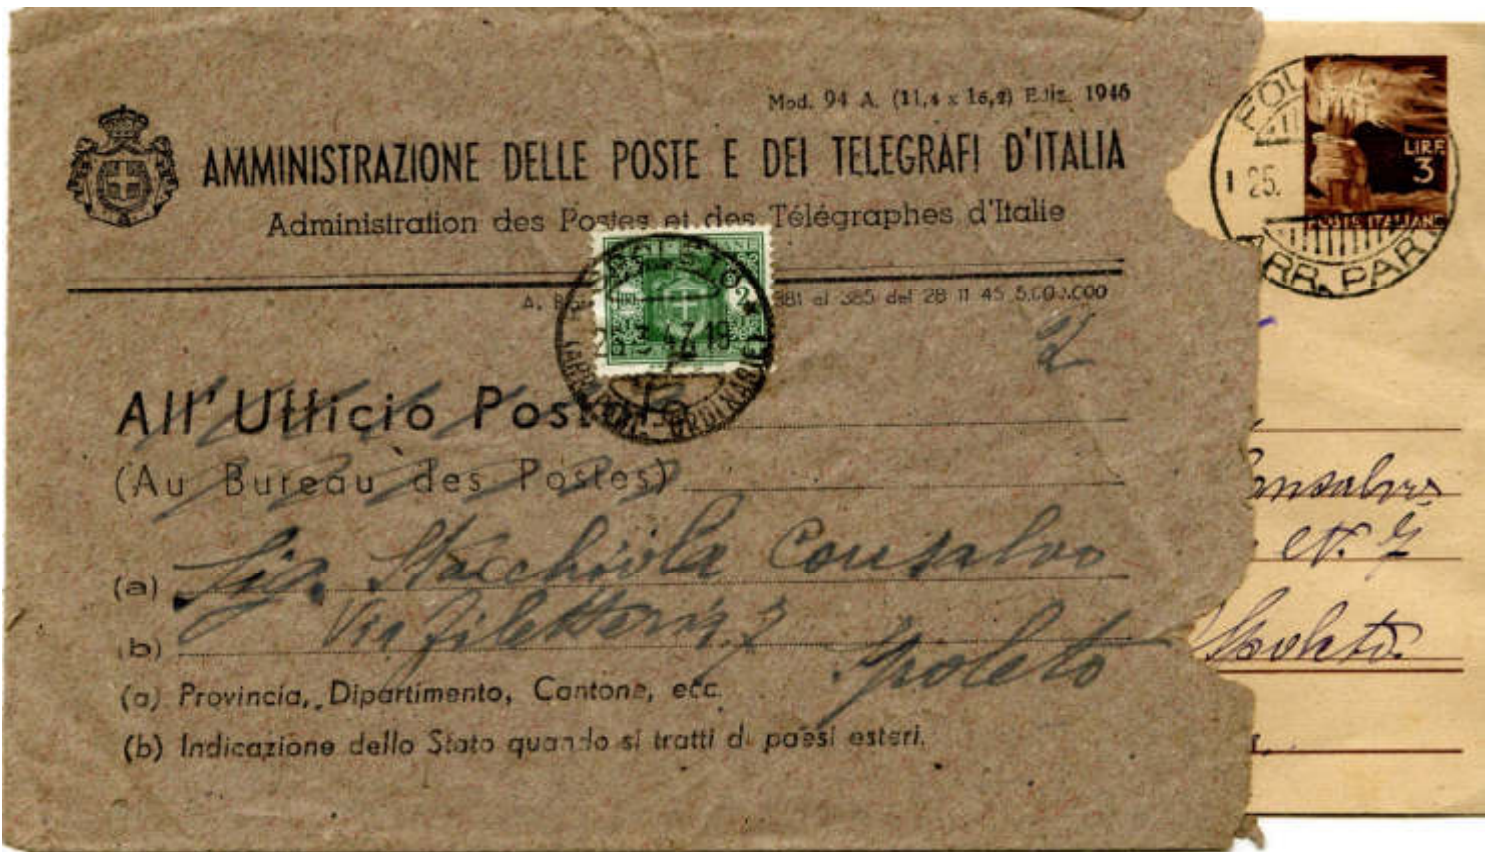 Mod. 94 A. (11,4 x 16,2) Ediz. 1946
AMMINISTRAZIONE DELLE POSTE E DEI TELEGRAFI D'ITALIA
Administration des Postes et des Télégraphes d'Italie
381 al 385 del 28 11 45 5.000.000
2
All'Ufficio Postale
(Au Bureau des Postes)
(a) Sig. Stacchiola Consalvo
(b) Via Filetteria 7
Spoleto
(a) Provincia, Dipartimento, Cantone, ecc.
(b) Indicazione dello Stato quando si tratti di paesi esteri.
LIRE
3
POSTE ITALIANE
25.
ARR. PAR
Consalvo
N. 7
Spoleto